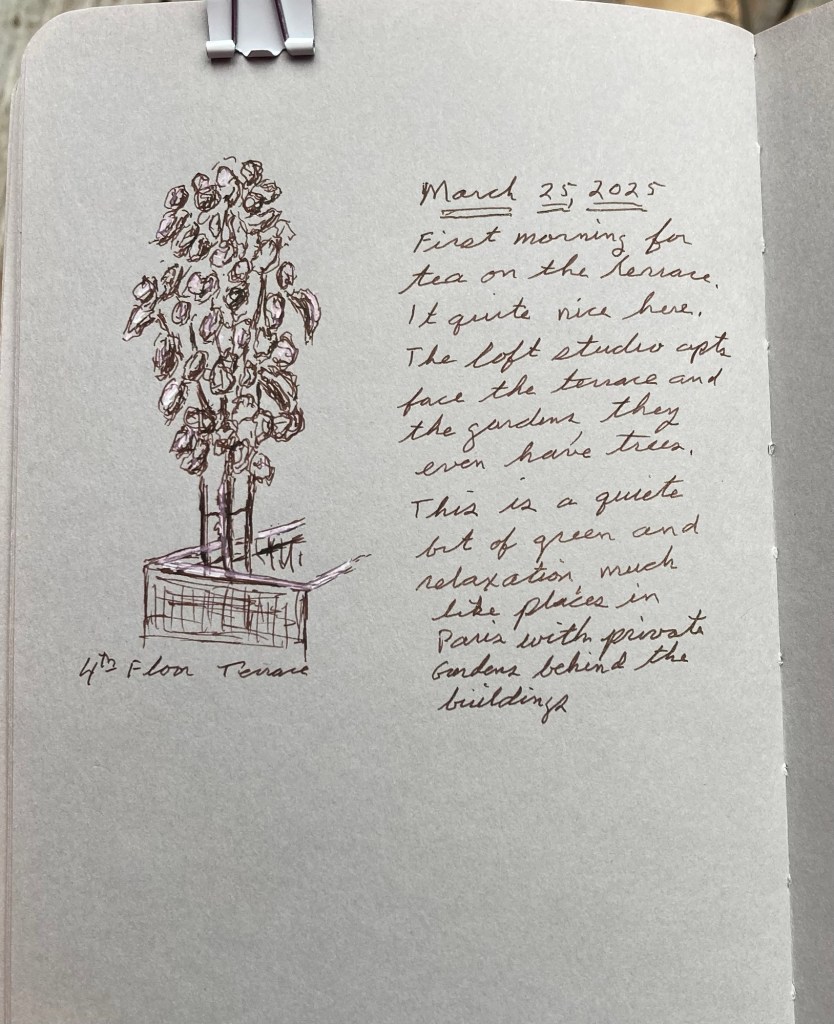 March 25, 2025
First morning for
tea on the terrace.
It quite nice here.
The loft studio apts
face the terrace and
the gardens, they
even have trees.
This is a quiete
bit of green and
relaxation, much
like places in
Paris with private
Gardens behind the
buildings
4th Floor Terrace